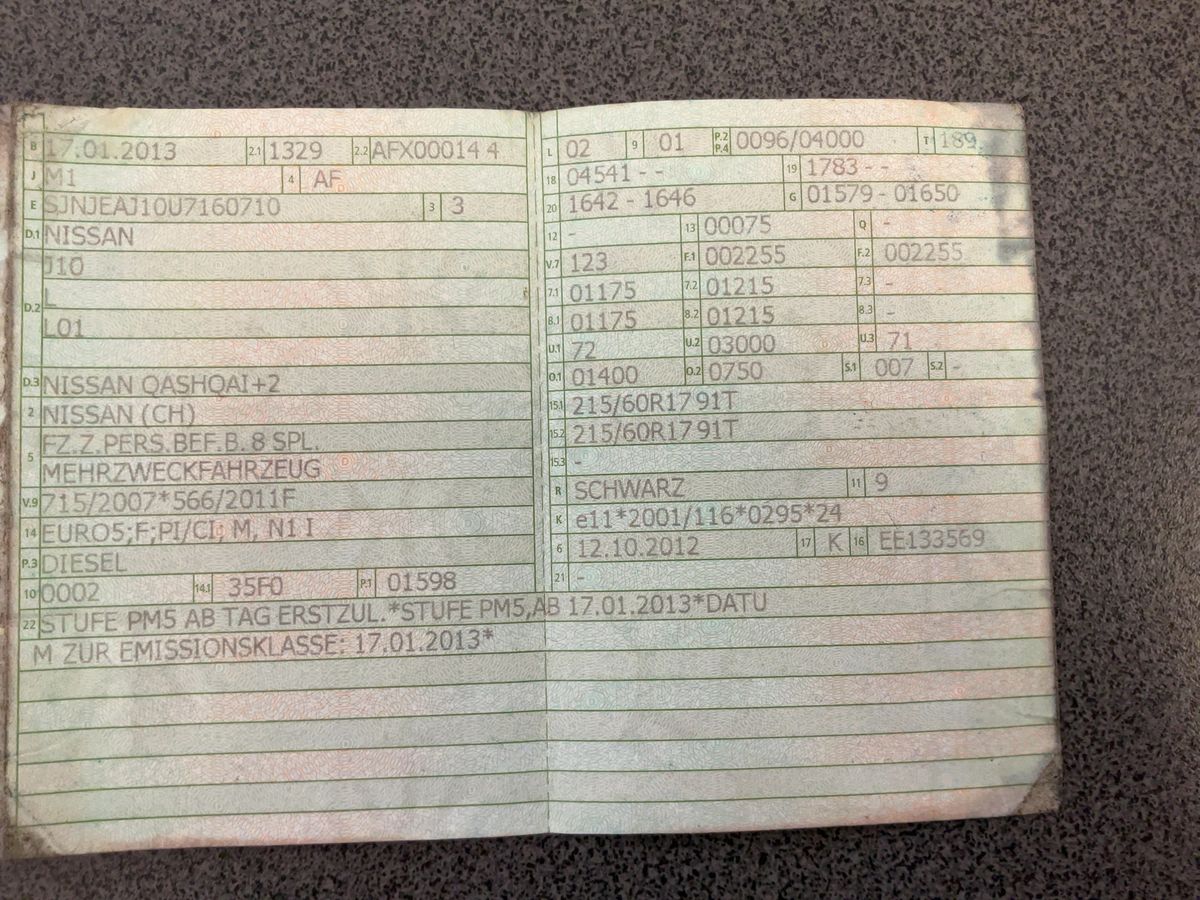 B 17.01.2013 2.1 1329 2.2 AFX00014 4
J M1 4 AF
E SJNJEAJ10U7160710 3 3
D.1 NISSAN
J10
D.2 L
L01
D.3 NISSAN QASHQAI+2
2 NISSAN (CH)
5 FZ.Z.PERS.BEF.B. 8 SPL.
MEHRZWECKFAHRZEUG
V.9 715/2007*566/2011F
14 EURO5;F;PI/CI; M, N1 I
P.3 DIESEL
10 0002 14.1 35F0 P.1 01598
L 02 9 01 P.2 P.4 0096/04000 T 189
18 04541 - - 19 1783 - -
20 1642 - 1646 G 01579 - 01650
12 - 13 00075 Q -
V.7 123 F.1 002255 F.2 002255
7.1 01175 7.2 01215 7.3 -
8.1 01175 8.2 01215 8.3 -
U.1 72 U.2 03000 U.3 71
O.1 01400 O.2 0750 S.1 007 S.2 -
15.1 215/60R17 91T
15.2 215/60R17 91T
15.3 -
R SCHWARZ 11 9
K e11*2001/116*0295*24
6 12.10.2012 17 K 16 EE133569
21 -
22 STUFE PM5 AB TAG ERSTZUL.*STUFE PM5,AB 17.01.2013*DATU
M ZUR EMISSIONSKLASSE: 17.01.2013*